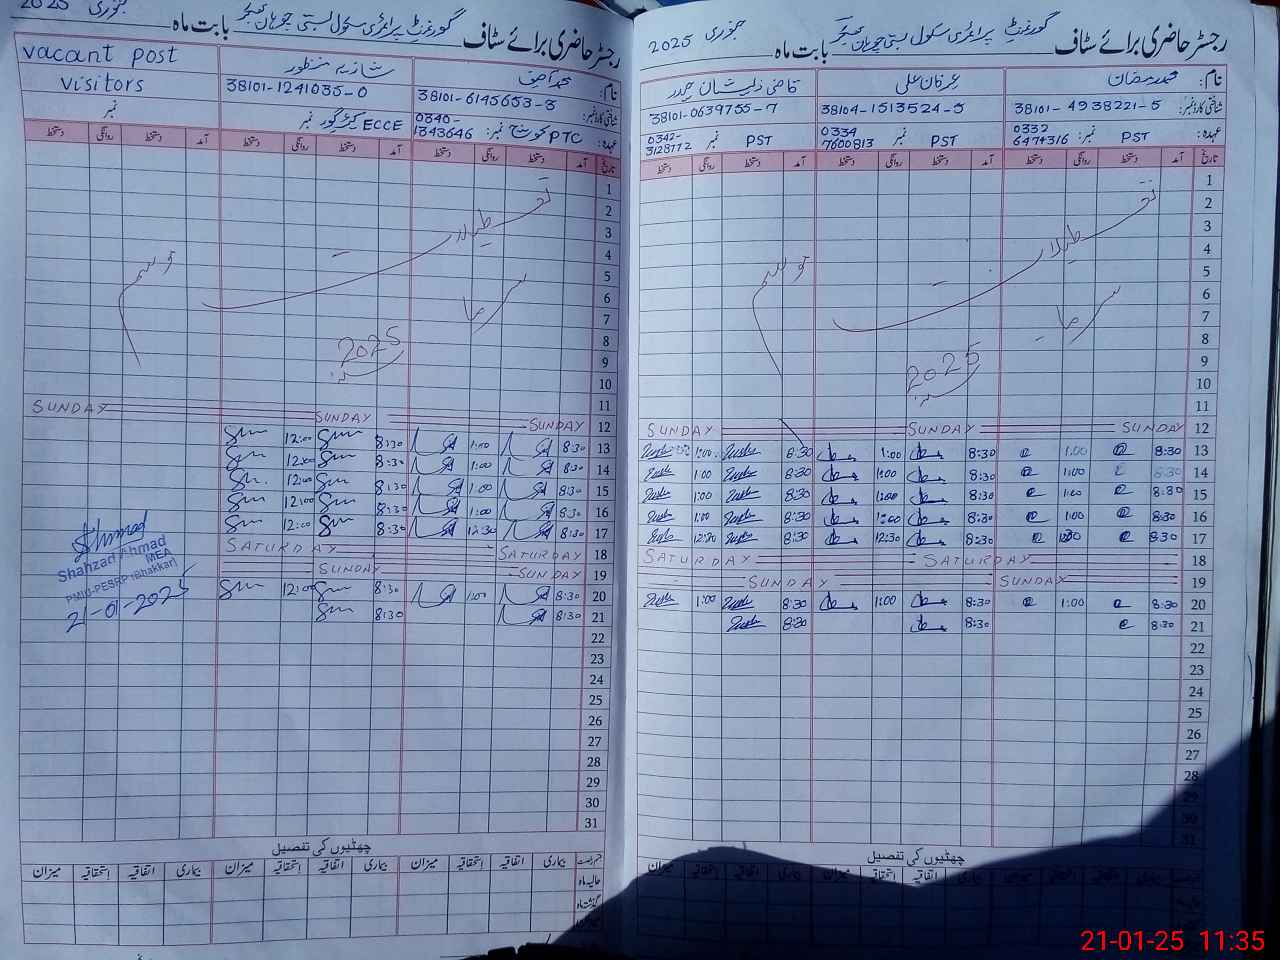 رجسٹر حاضری برائے سٹاف گورنمنٹ پرائمری سکول بستی بابت ماہ جنوری 2025
نام: محمد رمضان عرفان علی قاضی ذیشان حیدر
شناختی کارڈ نمبر: 38101-4938221-5 38104-1513524-5 38101-0639755-7
عہدہ: PST نمبر: 0332 6474316 PST نمبر 0334 7600813 PST نمبر 0342-3128772
تاریخ آمد دستخط روانگی دستخط آمد دستخط روانگی دستخط آمد دستخط روانگی دستخط
1
2
3
4
5
6
7
8
9
10
11
تعطیلات موسم سرما 2025
12 SUNDAY SUNDAY SUNDAY
13 8:30 1:00 8:30 1:00 8:30 1:00
14 8:30 1:00 8:30 1:00 8:30 1:00
15 8:30 1:00 8:30 1:00 8:30 1:00
16 8:30 1:00 8:30 1:00 8:30 1:00
17 8:30 12:30 8:30 12:30 8:30 12:30
18 SATURDAY SATURDAY
19 SUNDAY SUNDAY
20 8:30 1:00 8:30 1:00 8:30 1:00
21 8:30 8:30 8:30
22
23
24
25
26
27
28
29
30
31
چھٹیوں کی تفصیل
میزان استحقاقیہ اتفاقیہ بیماری میزان استحقاقیہ اتفاقیہ بیماری
رجسٹر حاضری برائے سٹاف گورنمنٹ پرائمری سکول بستی بابت ماہ جنوری 2025
نام: شازیہ منظور vacant post
شناختی کارڈ نمبر: 38101-6145653-3 38101-1241035-0 visitors
عہدہ: PTC نمبر: 0340-1343646 ECCE کیئر گیور نمبر نمبر
تاریخ آمد دستخط روانگی دستخط آمد دستخط روانگی دستخط آمد دستخط روانگی دستخط
1
2
3
4
5
6
7
8
9
10
11
تعطیلات موسم سرما 2025
12 SUNDAY SUNDAY SUNDAY
13 8:30 1:00 8:30 12:00
14 8:30 1:00 8:30 12:00
15 8:30 1:00 8:30 12:00
16 8:30 1:00 8:30 12:00
17 8:30 12:30 8:30 12:00
18 SATURDAY SATURDAY
19 SUNDAY SUNDAY
20 8:30 1:00 8:30 12:00
21 8:30 8:30
22
23
24
25
26
27
28
29
30
31
Shahzad Ahmad
MEA
PMIU-PESRP (Bhakkar)
21-01-2025
چھٹیوں کی تفصیل
بیماری اتفاقیہ استحقاقیہ میزان بیماری اتفاقیہ استحقاقیہ میزان بیماری اتفاقیہ استحقاقیہ میزان
حالیہ ماہ
گذشتہ ماہ
21-01-25 11:35